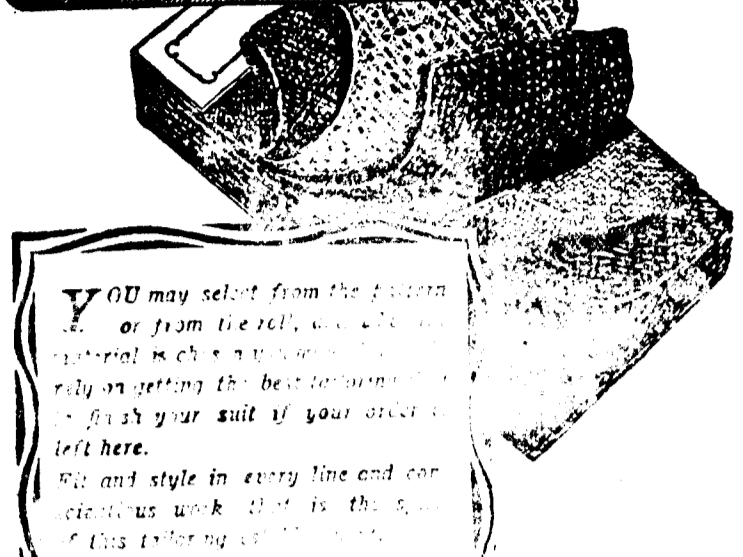 YOU may select from the pattern
or from the roll,
material is
rely on getting the best tailoring
finish your suit if your order is
left here.
Fit and style in every line and con
scientious work that is the
of this tailoring